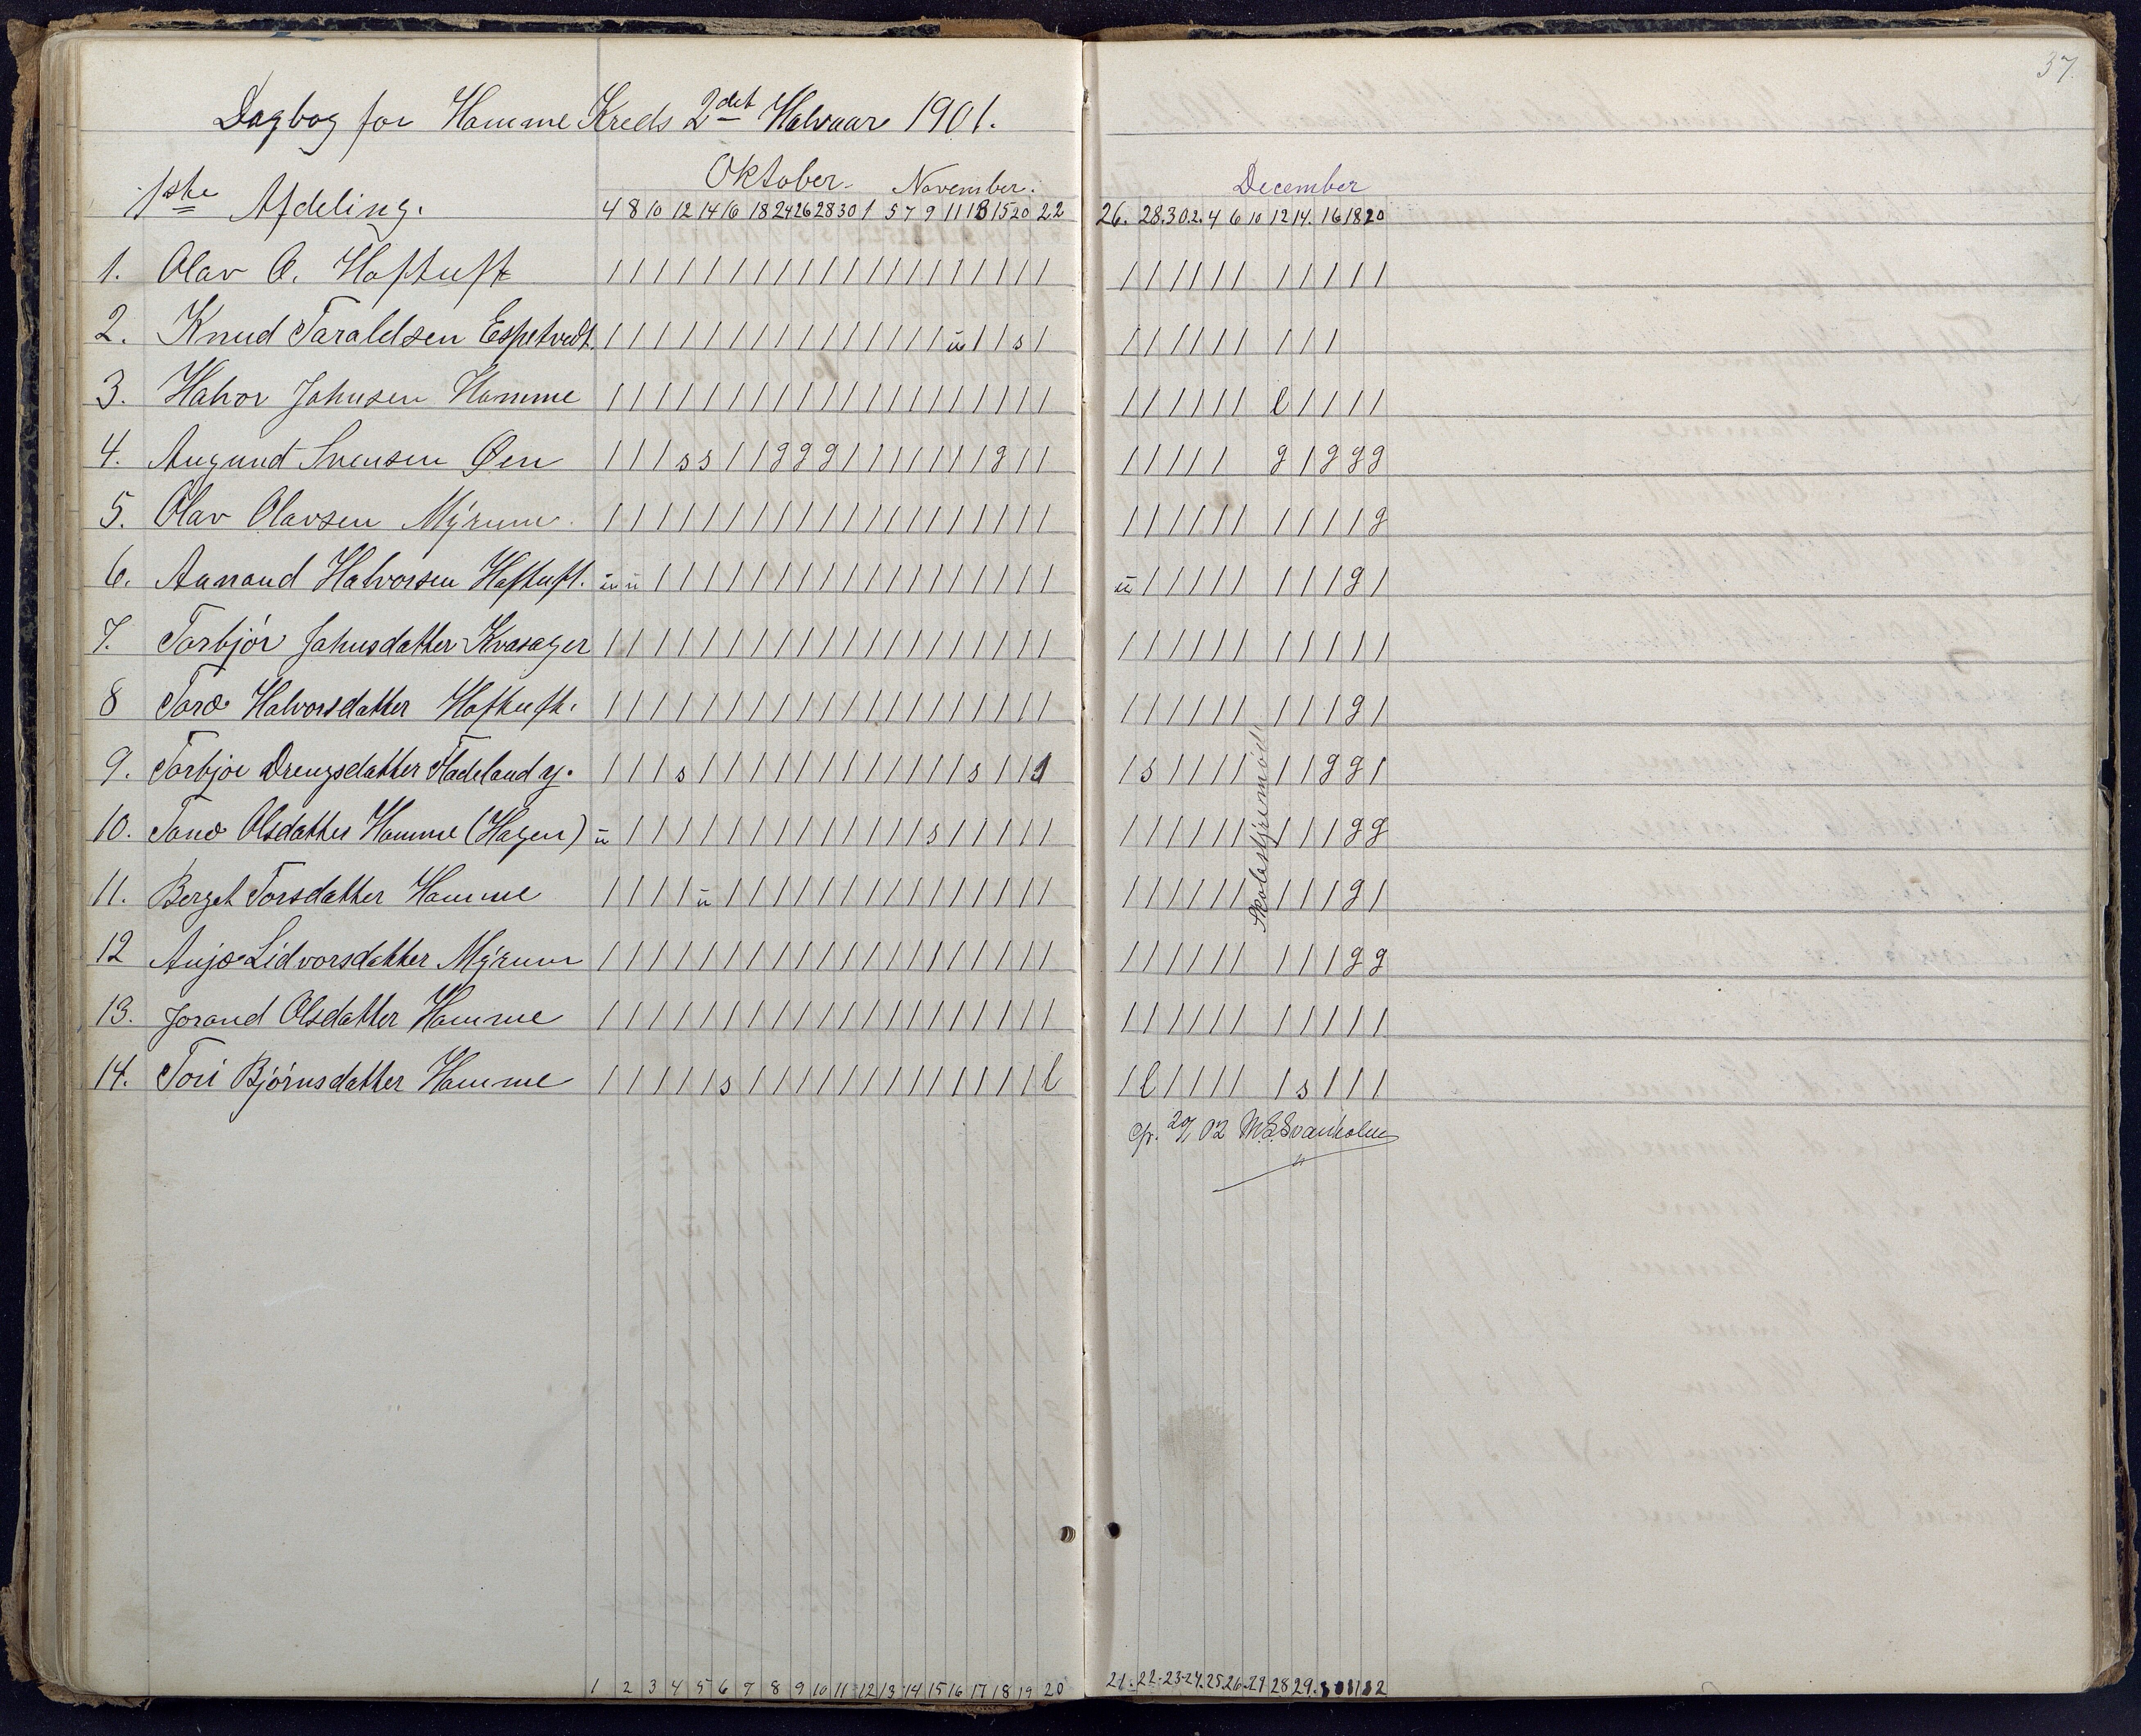 37.
Dagbog for Homme Kreds 2det Halvaar 1901.
1ste Afdeling.
Oktober. November.
4 8 10 12 14 16 18 24 26 28 30 1 5 7 9 11 13 15 20 22
December
26. 28. 30. 2. 4 6 10 12 14. 16 18 20
1. Olav O. Haftuft | | | | | | | | | | | | | | | | | | | | | | | | | | | | | | |
2. Knud Taraldsen Espetvedt. | | | | | | | | | | | | | | | ü | | s | | | | | | | | | |
3. Halvor Johnsen Homme | | | | | | | | | | | | | | | | | | | | | | | | | | l | | | |
4. Augund Svensen Øen | | | s s | | g g g | | | | | | | g | | | | | | | g | g g g
5. Olav Olavsen Myrum | | | | | | | | | | | | | | | | | | | | | | | | | | | | | | g
6. Aanand Halvorsen Haftuft. ü ü | | | | | | | | | | | | | | | | | | ü | | | | | | | | g |
7. Torbjör Johnsdatter Kvasager | | | | | | | | | | | | | | | | | | | | | | | | | | | | | | |
8 Toro Halvorsdatter Haftuft. | | | | | | | | | | | | | | | | | | | | | | | | | | | | | g |
9. Torbjør Drengsdatter Fladeland y. | | | s | | | | | | | | | | | s | | | | s | | | | | | g g |
10. Tone Olsdatter Homme (Hagen) ü | | | | | | | | | | | | | s | | | | | | | | | | | | | | g g
11. Berget Torsdatter Homme | | | | ü | | | | | | | | | | | | | | | | | | | | | | | | g |
12 Anjo Lidvorsdatter Myrum | | | | | | | | | | | | | | | | | | | | | | | | | | | | | g g
13. Jorand Olsdatter Homme | | | | | | | | | | | | | | | | | | | | | | | | | | | | | | |
14. Tori Björnsdatter Homme | | | | | s | | | | | | | | | | | | | l | l | | | | | s | | |
Skolestyremöde
20/1 02 M. S. Svanholm
1 2 3 4 5 6 7 8 9 10 11 12 13 14 15 16 17 18 19 20
21. 22. 23. 24. 25. 26. 27 28 29. 30 31 32